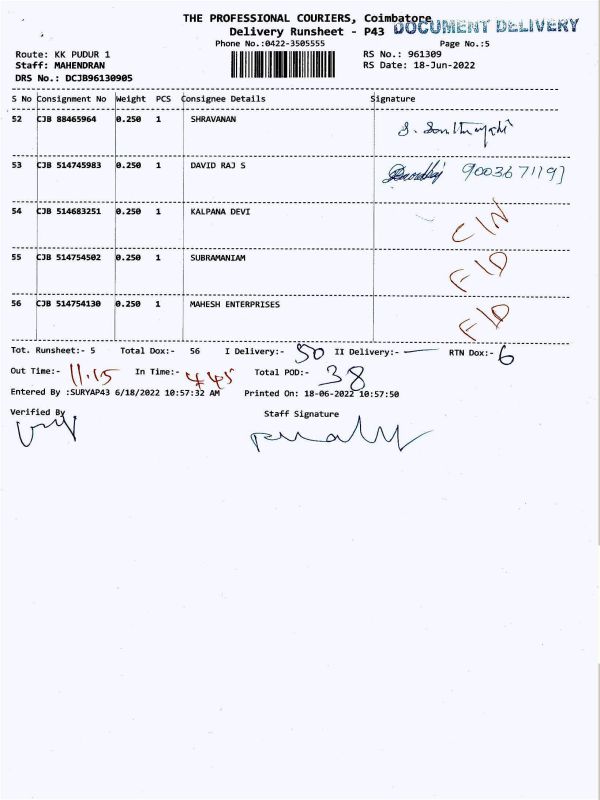 THE PROFESSIONAL COURIERS, Coimbatore
DOCUMENT DELIVERY
Delivery Runsheet - P43
Phone No.:0422-3505555 Page No.:5
Route: KK PUDUR 1 RS No.: 961309
Staff: MAHENDRAN RS Date: 18-Jun-2022
DRS No.: DCJB96130905
S No Consignment No Weight PCS Consignee Details Signature
52 CJB 88465964 0.250 1 SHRAVANAN
53 CJB 514745983 0.250 1 DAVID RAJ S 9003671197
54 CJB 514683251 0.250 1 KALPANA DEVI CIN
55 CJB 514754502 0.250 1 SUBRAMANIAM FID
56 CJB 514754130 0.250 1 MAHESH ENTERPRISES FID
Tot. Runsheet:- 5 Total Dox:- 56 I Delivery:- 50 II Delivery:- — RTN Dox:- 6
Out Time:- 11.15 In Time:- 4.45 Total POD:- 38
Entered By :SURYAP43 6/18/2022 10:57:32 AM Printed On: 18-06-2022 10:57:50
Verified By Staff Signature